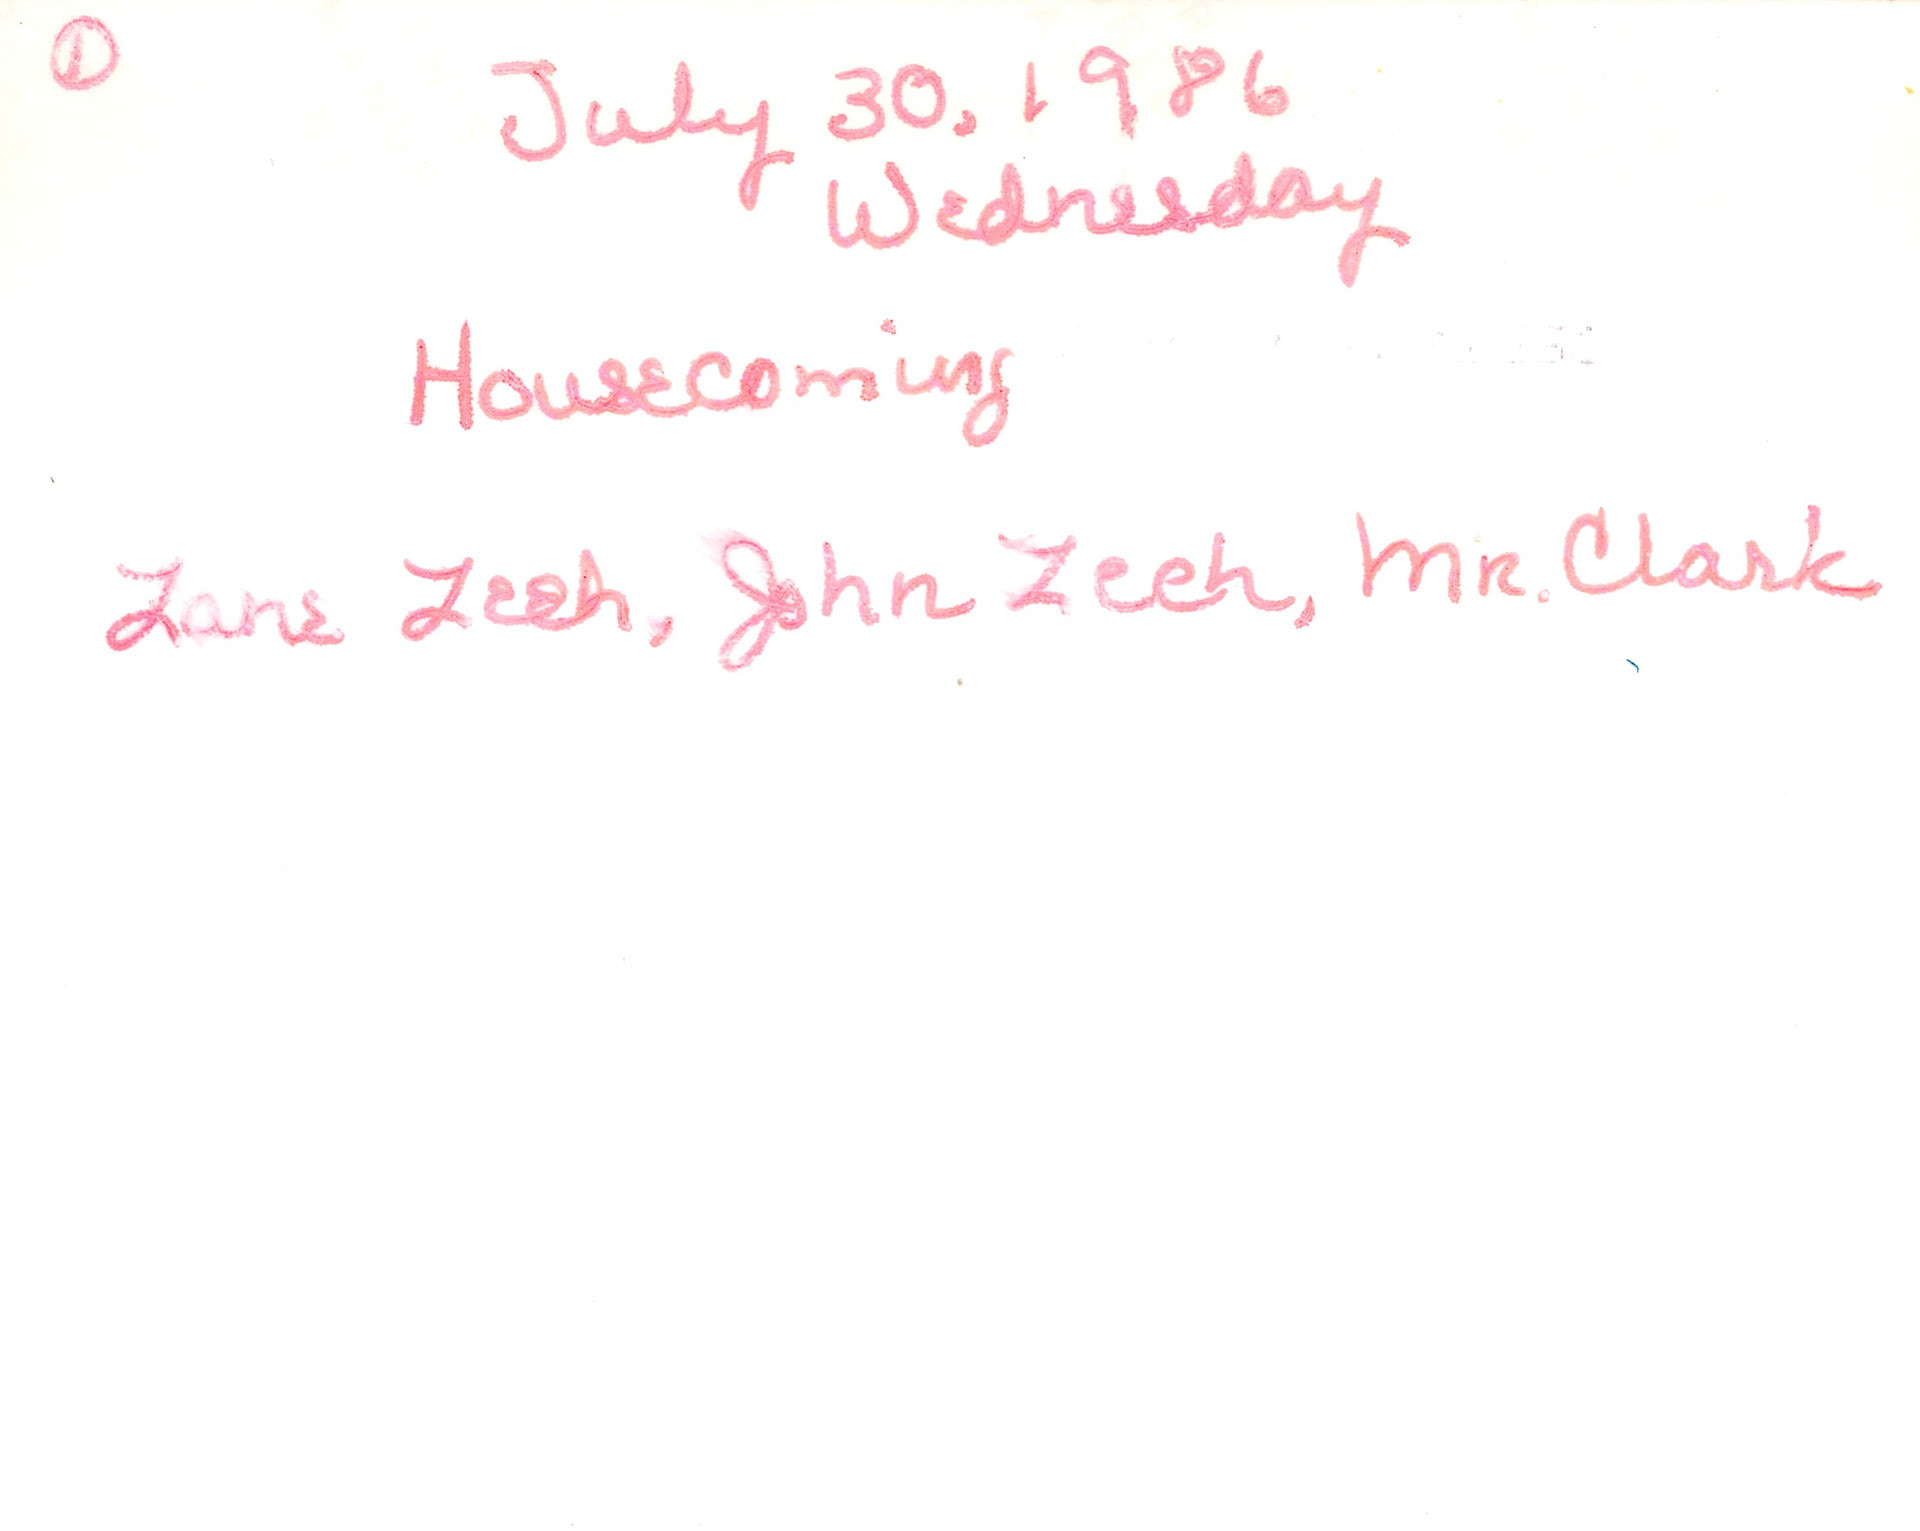 ①
July 30, 1986
Wednesday
Housecoming
Lane Zech, John Zech, Mr. Clark